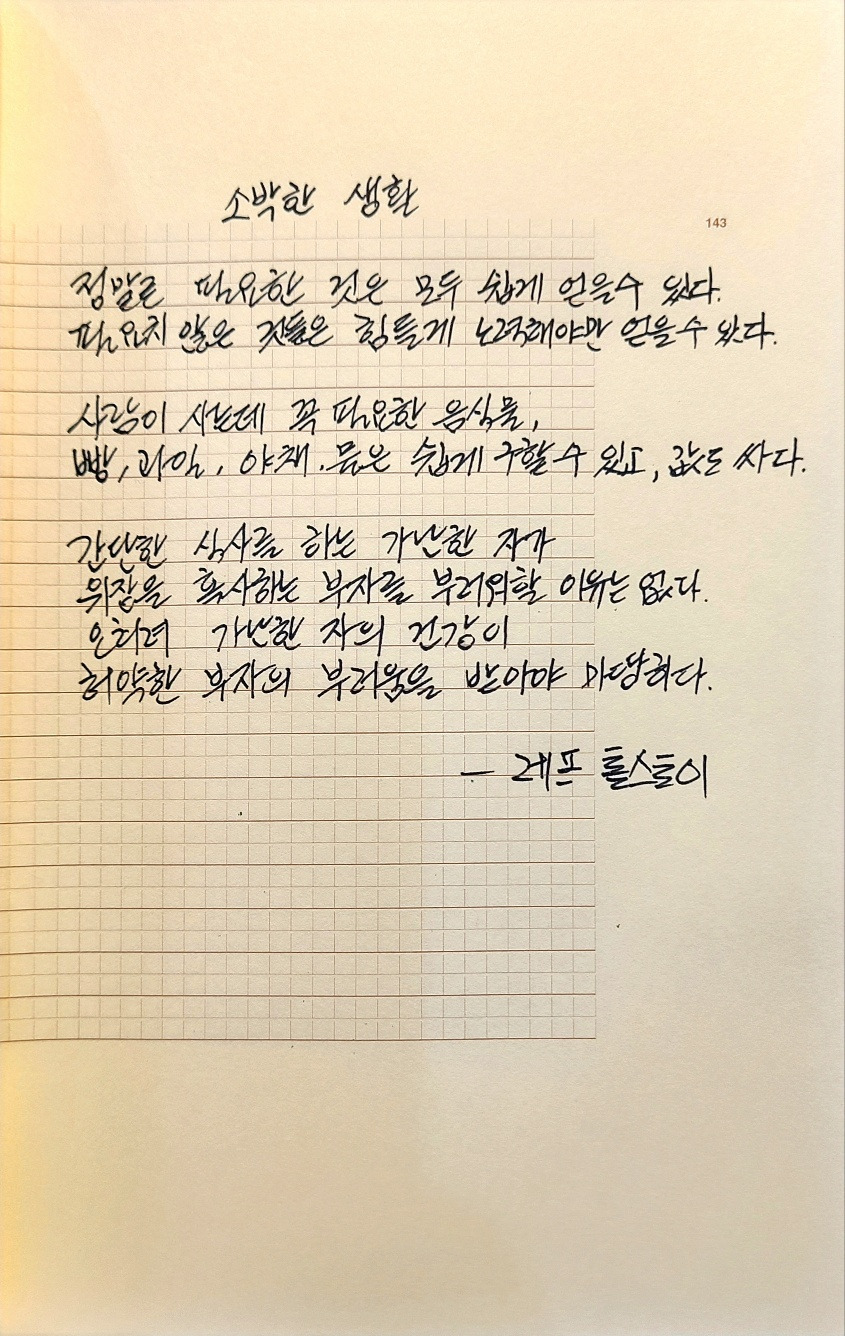 소박한 생활
143
정말로 필요한 것은 모두 쉽게 얻을수 있다.
필요치 않은 것들은 힘들게 노력해야만 얻을수 있다.
사람이 사는데 꼭 필요한 음식물,
빵, 과일, 야채, 물은 쉽게 구할수 있고, 값도 싸다.
간단한 식사를 하는 가난한 자가
위장을 혹사하는 부자를 부러워할 이유는 없다.
오히려 가난한 자의 건강이
허약한 부자의 부러움을 받아야 마땅하다.
- 레프 톨스토이